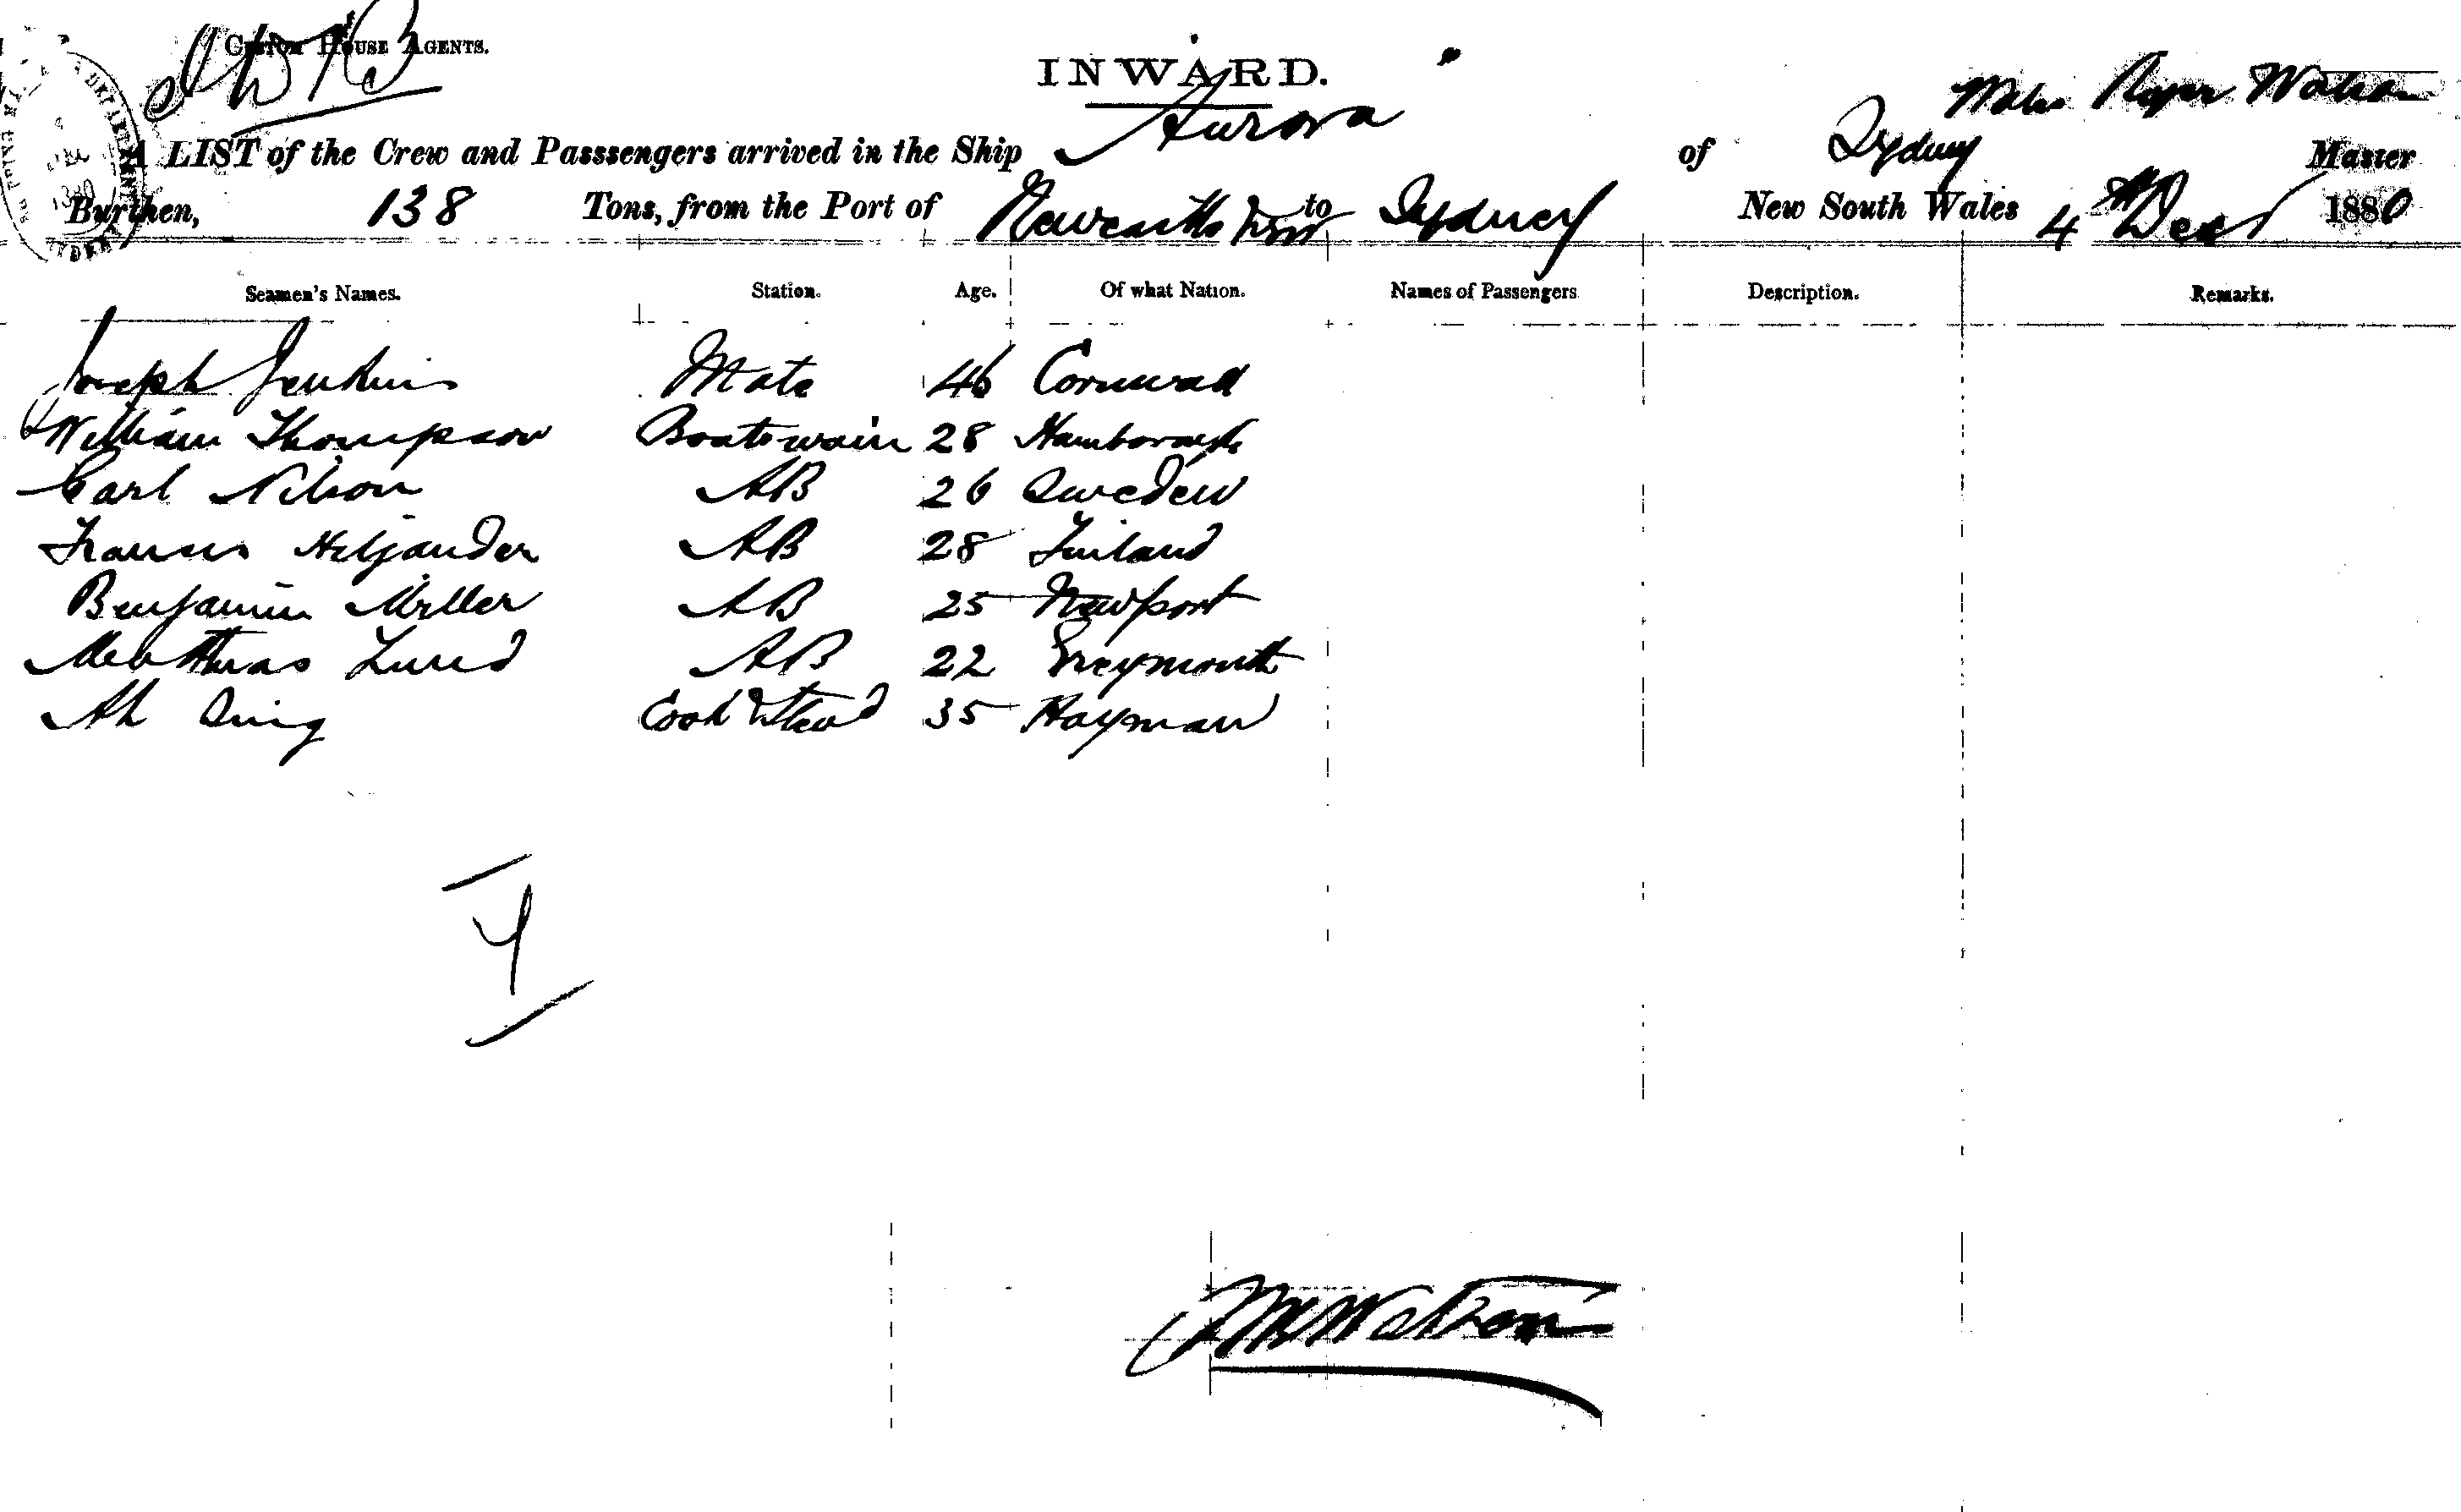 CUSTOM HOUSE AGENTS.
INWARD.
Roper Watson
A LIST of the Crew and Passsengers arrived in the Ship Aurora of Sydney Master
Burthen, 138 Tons, from the Port of Newcastle NSW to Sydney New South Wales 4th Decr 1880
Seamen's Names. Station. Age. Of what Nation. Names of Passengers. Description. Remarks.
Joseph Jenkins Mate 46 Cornwall
William Thompson Boatswain 28 Hamborough
Carl Nilson AB 26 Sweden
Hiljander AB 28 Finland
Benjamin Miller AB 25 Newport
Matthias Lund AB 22 Greymouth
Ah Sing Cook & Stewd 35 Haynan
Watson